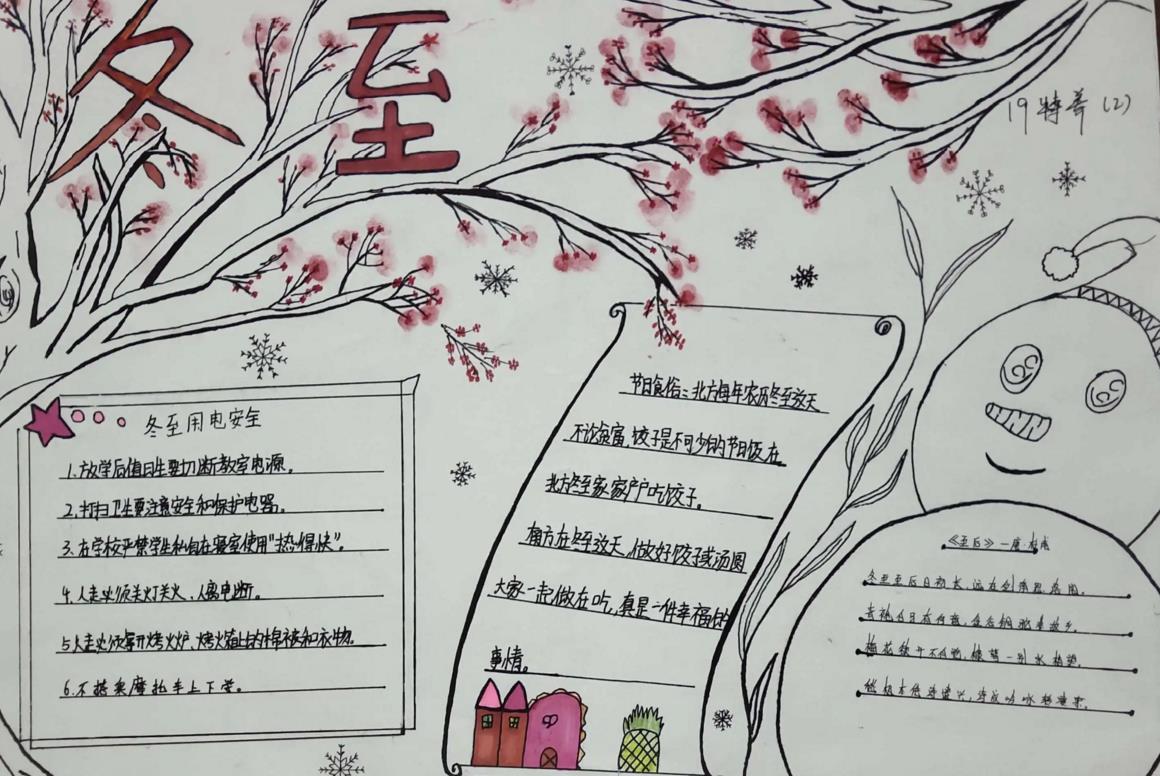 冬至
19特等(2)
冬至用电安全
1.放学后值日生要切断教室电源。
2.打扫卫生要注意安全和保护电器。
3.在学校严禁学生私自在寝室使用"热得快"。
4.人走必须关灯关火、人离电断。
5.人走必须掀开烤火炉、烤火箱上的棉被和衣物。
6.不搭乘摩托车上下学。
节日食俗：北方每年农历冬至这天
不论贫富,饺子是不可少的节日饭,在
北方冬至家家户户吃饺子。
南方在冬至这天,做好饺子或汤圆
大家一起做在吃,真是一件幸福的
事情。
《至后》一唐·杜甫
冬至至后日初长,远在剑南思洛阳。
青袍白马有何意,金谷铜驼非故乡。
梅花欲开不自觉,棣萼一别永相望。
愁极本凭诗遣兴,诗成吟咏转凄凉。